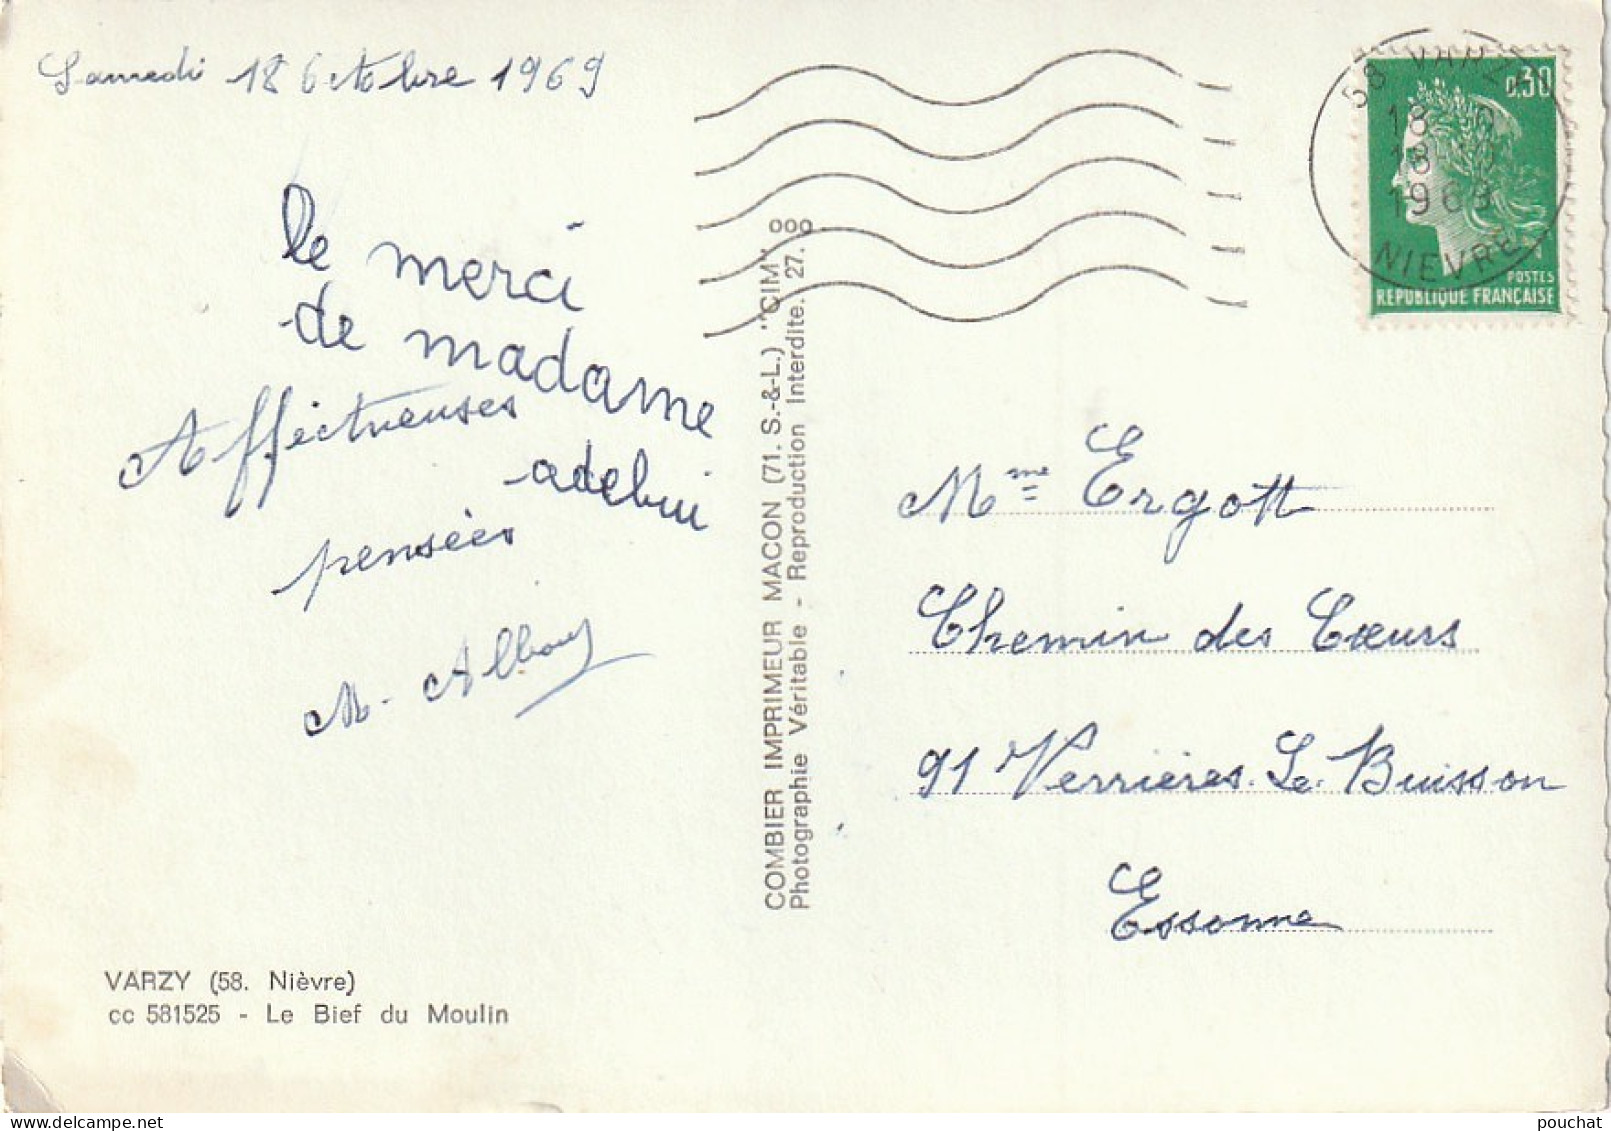 Samedi 18 Octobre 1969
le merci
de madame
Affectueuses
adebui
pensées
M. Alboug
58 VARZY
18 - 10
1969
NIEVRE
0,30
POSTES
REPUBLIQUE FRANÇAISE
COMBIER IMPRIMEUR MACON (71. S.-&-L.) "CIM"
Photographie Véritable - Reproduction Interdite. 27.
Mme Ergott
Chemin des Cœurs
91 Verrières-Le-Buisson
Essonne
VARZY (58. Nièvre)
cc 581525 - Le Bief du Moulin
pouchat